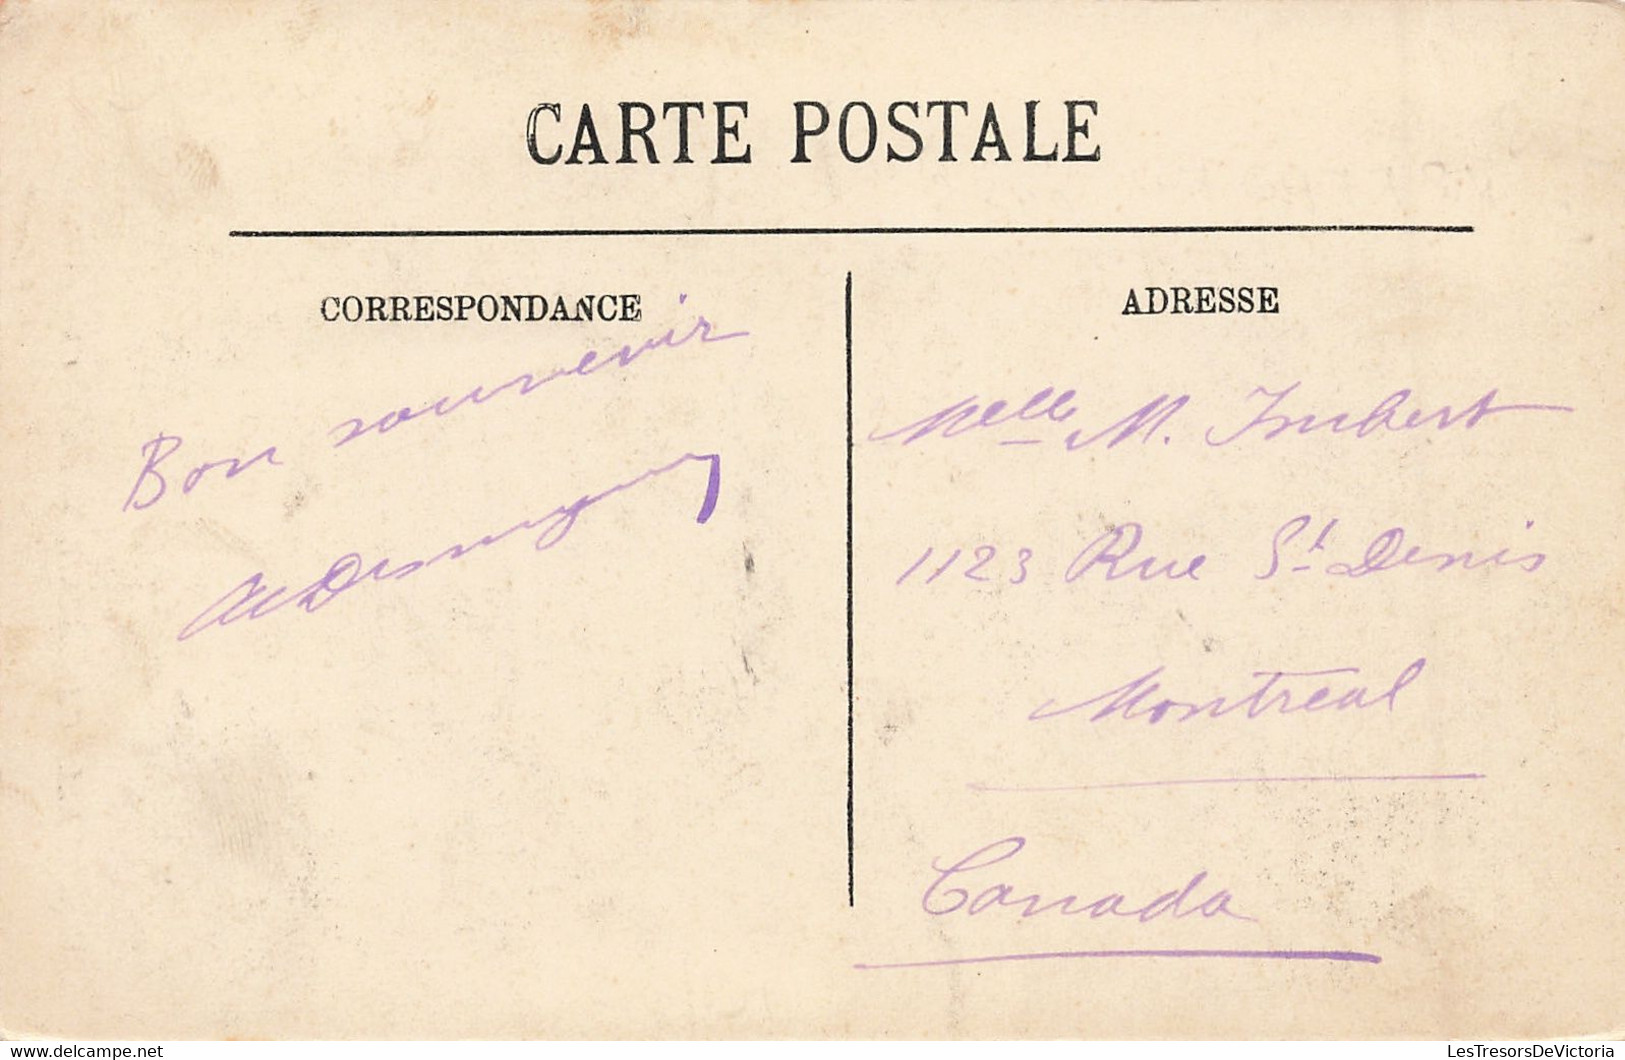 CARTE POSTALE
CORRESPONDANCE
Bon souvenir
ADRESSE
Melle M. Imbert
1123 Rue St Denis
Montréal
Canada
LesTresorsDeVictoria